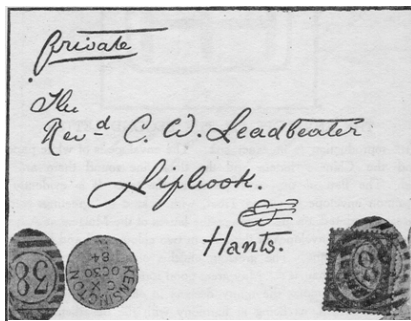 Private
The
Revd C. W. Leadbeater
Liphook.
Hants.
38
KENSINGTON
C X
OC30
84
38